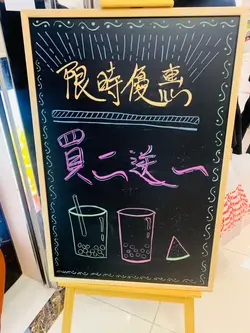 限時優惠
買二送一